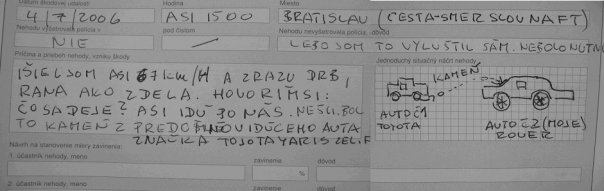 Dátum škodovej udalosti
4/7/2006
Hodina
ASI 1500
Miesto
BRATISLAV (CESTA-SMER SLOVNAFT)
Nehodu vyšetrovala polícia v
NIE
pod číslom
Nehodu nevyšetrovala polícia, dôvod
LEBO SOM TO VYLUŠTIL SÁM. NEBOLO NUTN
Príčina a priebeh nehody, vzniku škody
IŠIEL SOM ASI 67km/H A ZRAZU DRB,
RANA AKO Z DELA. HOVORÍM SI:
ČO SA DEJE? ASI IDÚ PO NÁS. NEŠLI. BOL
TO KAMEŇ Z PREDO IDÚCEHO AUTA
ZNAČKA TOJOTA YARIS
Jednoduchý situačný náčrt nehody
KAMEŇ
AUTO Č1
TOYOTA
AUTO Č2 (MOJE)
ROVER
Návrh na stanovenie miery zavinenia:
1. účastník nehody, meno
zavinenie
%
dôvod
2. účastník nehody, meno
zavinenie
dôvod